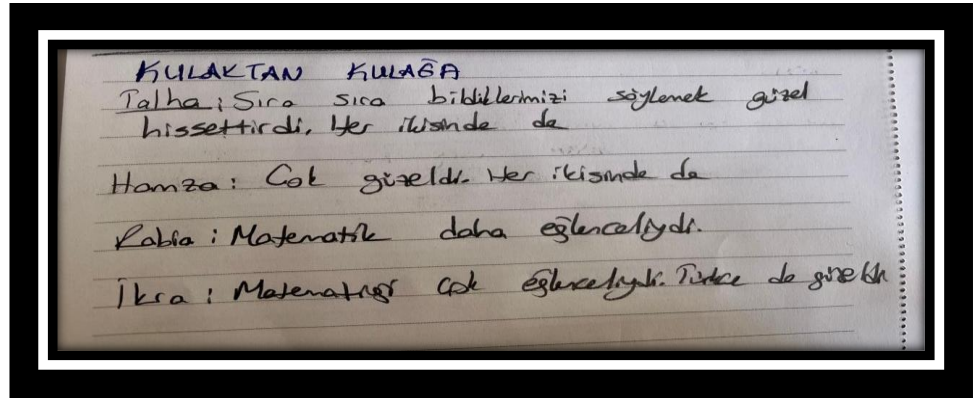 KULAKTAN KULAĞA
Talha: Sıra sıra bildiklerimizi söylemek güzel
hissettirdi. Her ikisinde de
Hamza: Çok güzeldi. Her ikisinde de
Rabia: Matematik daha eğlenceliydi.
İkra: Matematiği çok eğlenceliydi. Türkçe de güzeldi